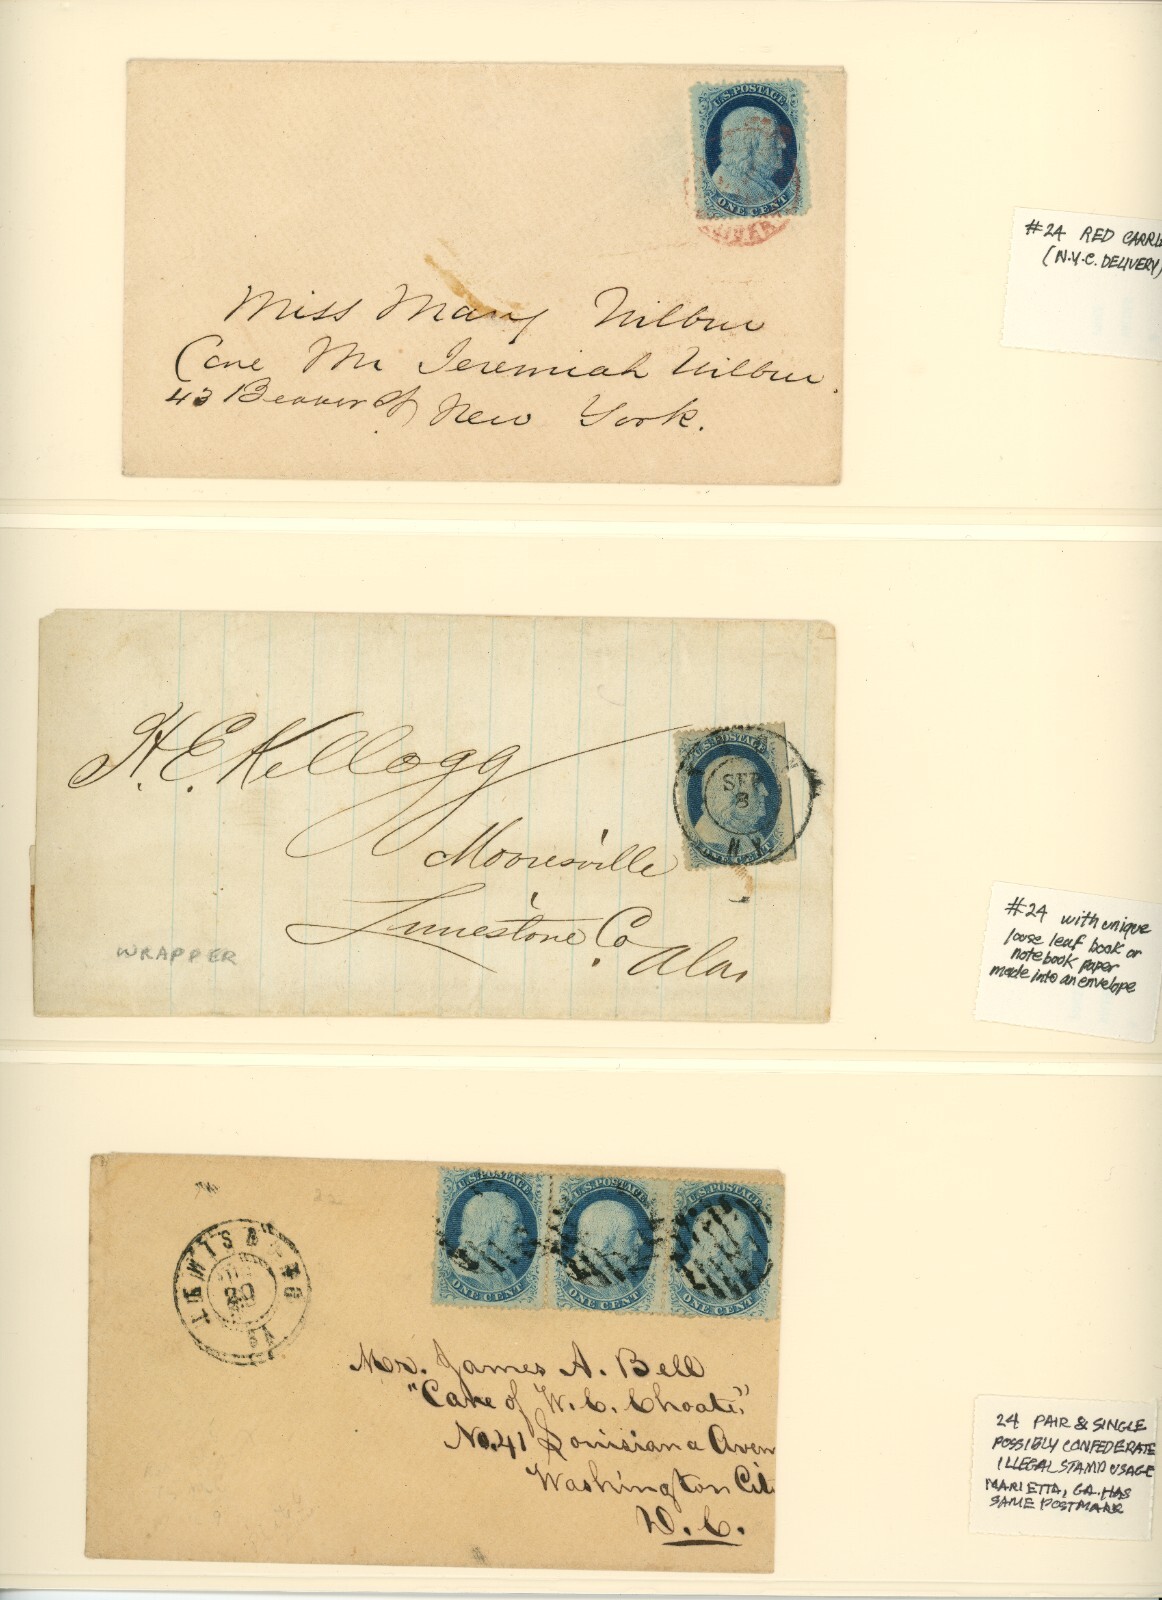 U.S. POSTAGE
ONE CENT
#24 RED CARRIE
(N.Y.C. DELIVERY)
Miss Mary Wilbur
Care Mr Jeremiah Wilbur.
43 Beaver St New York.
U.S. POSTAGE
SEP
8
N.Y.
ONE CENT
H. E. Kellogg
Mooresville
Limestone Co.
Ala
WRAPPER
#24 with unique
loose leaf book or
notebook paper
made into an envelope
U.S. POSTAGE U.S. POSTAGE U.S. POSTAGE
ONE CENT ONE CENT ONE CENT
LEWISBURG
20
VA
Mr. James A. Bell
"Care of W. C. Choate"
No. 41 Louisiana Aven
Washington Cit
D. C.
24 PAIR & SINGLE
POSSIBLY CONFEDERATE
ILLEGAL STAMP USAGE
MARIETTA, GA. HAS
SAME POSTMARK